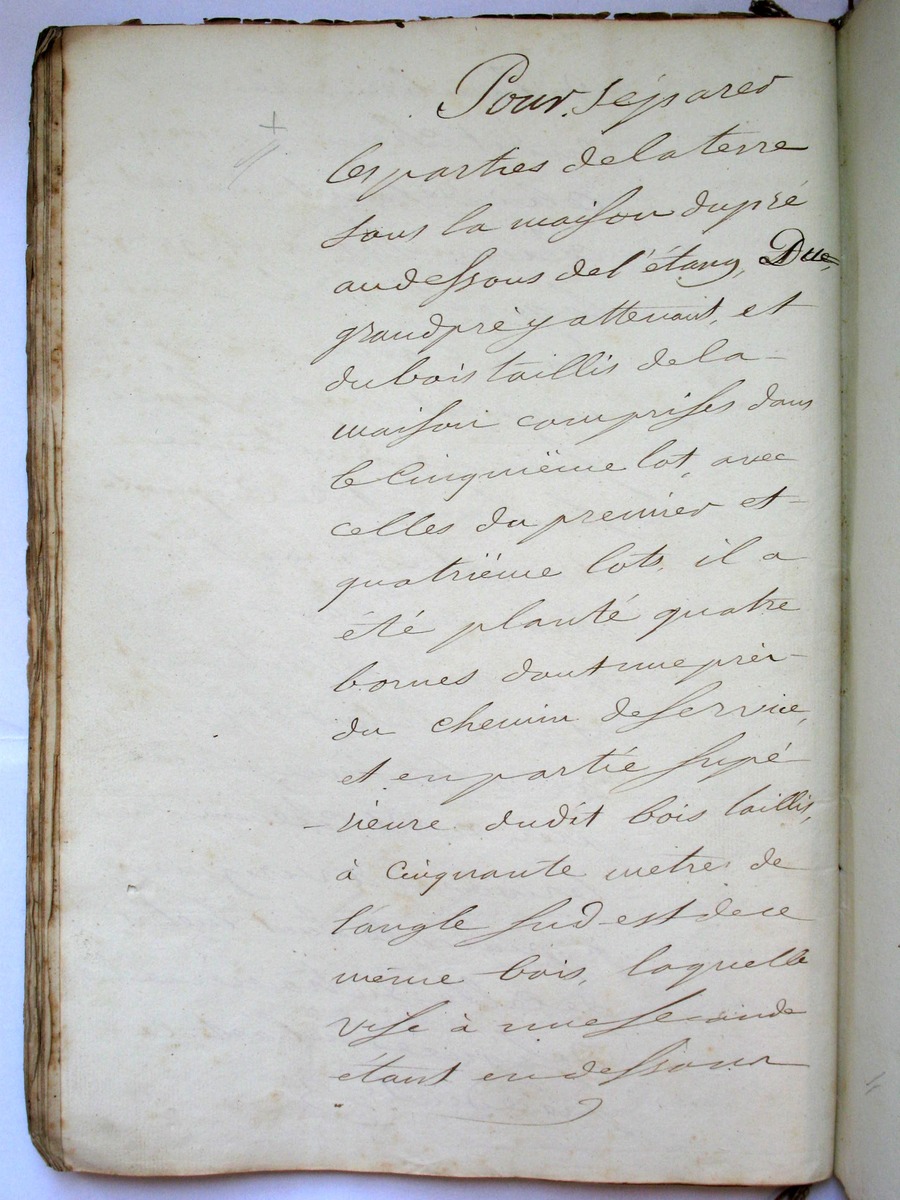 Pour séparer
les parties de la terre
sous la maison du pré
au dessous de l'étang, Du
grand pré y attenant, et
du bois taillis de la
maison comprises dans
le Cinquième lot, avec
celles du premier et
quatrième lots, il a
été planté quatre
bornes dont une près
du chemin de service,
et en partie supé
rieure dudit bois taillis,
à cinquante mètres de
l'angle sud-est de ce
même bois, laquelle
vise à une seconde
étant en dessous